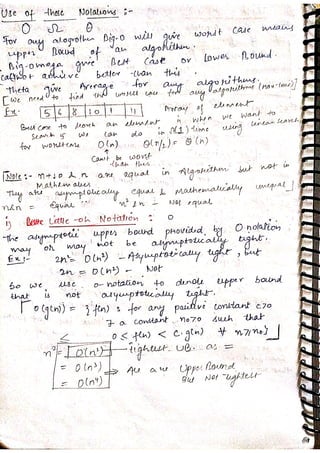 Use of these Notations :-
O Ω θ
For any alogrothm Big-O will give worst case means
upper Bound of an algorithm.
Big-omega give Best case or Lower Bound.
cannot achive better than this
Theta give Average for any algorithms.
[We need to find the worst case for any algorithms (max-time)]
Ex:- 5 6 8 10 11 Array of element
Best case to search an element is when we want to
search 5 we can do in Ω(1) time using linear search
for worstcase O(n) θ(n/2) = θ(n)
Can't be worst
than this
Note :- n+10 & n are equal in Algorithm but not in
Mathematics
They are asymptotically equal & Mathematically unequal
n = Equal n² & n - Not equal
1) Little-oh Notation : o
-the asymptotic upper bound provided by O notation
may or may not be asymptotically tight.
Ex:- 2n² = O(n²) - Asymptotically tight, but
2n = O(n²) - Not
So we use o-notation to denote upper bound
that is not asymptotically tight.
o(g(n)) = { f(n) : for any positive constant c>0
∃ a constant n₀>0 such that
0 ≤ f(n) < c.g(n) ∀ n≥n₀}
≤
n² = O(n²) → tightest UB. as =
= O(n³) ⇒ All are Upper Bound
= O(n⁴) But Not Tightest